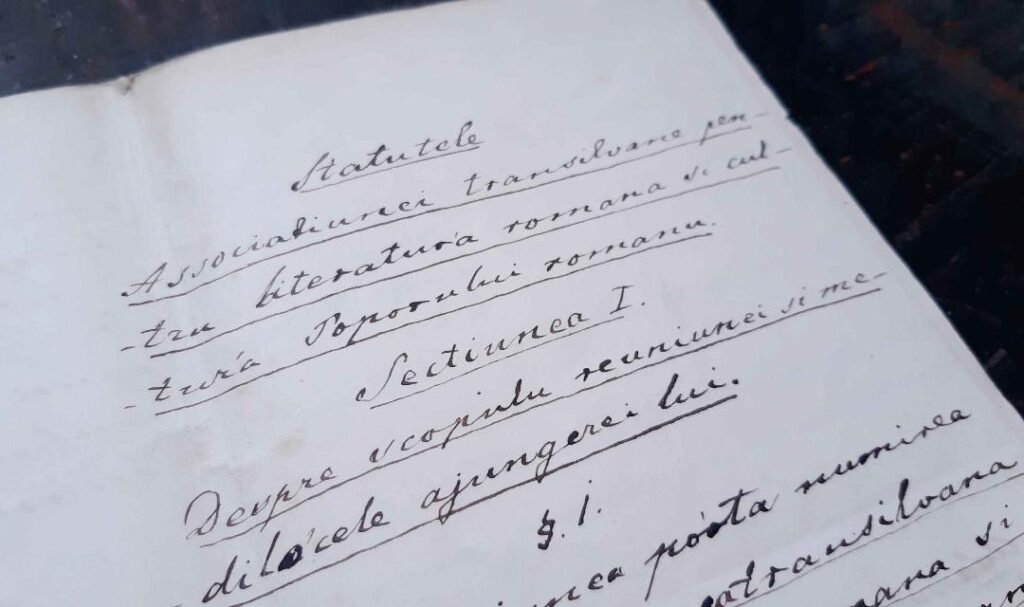 Statutele
Associatiunei transilvane pen-
-tru literatur'a romana si cul-
-tur'a Poporului romanu.
Sectiunea I.
Despre scopulu reuniunei si me-
dilócele ajungerei lui.
§. 1.
pórta numirea
transilvana
si